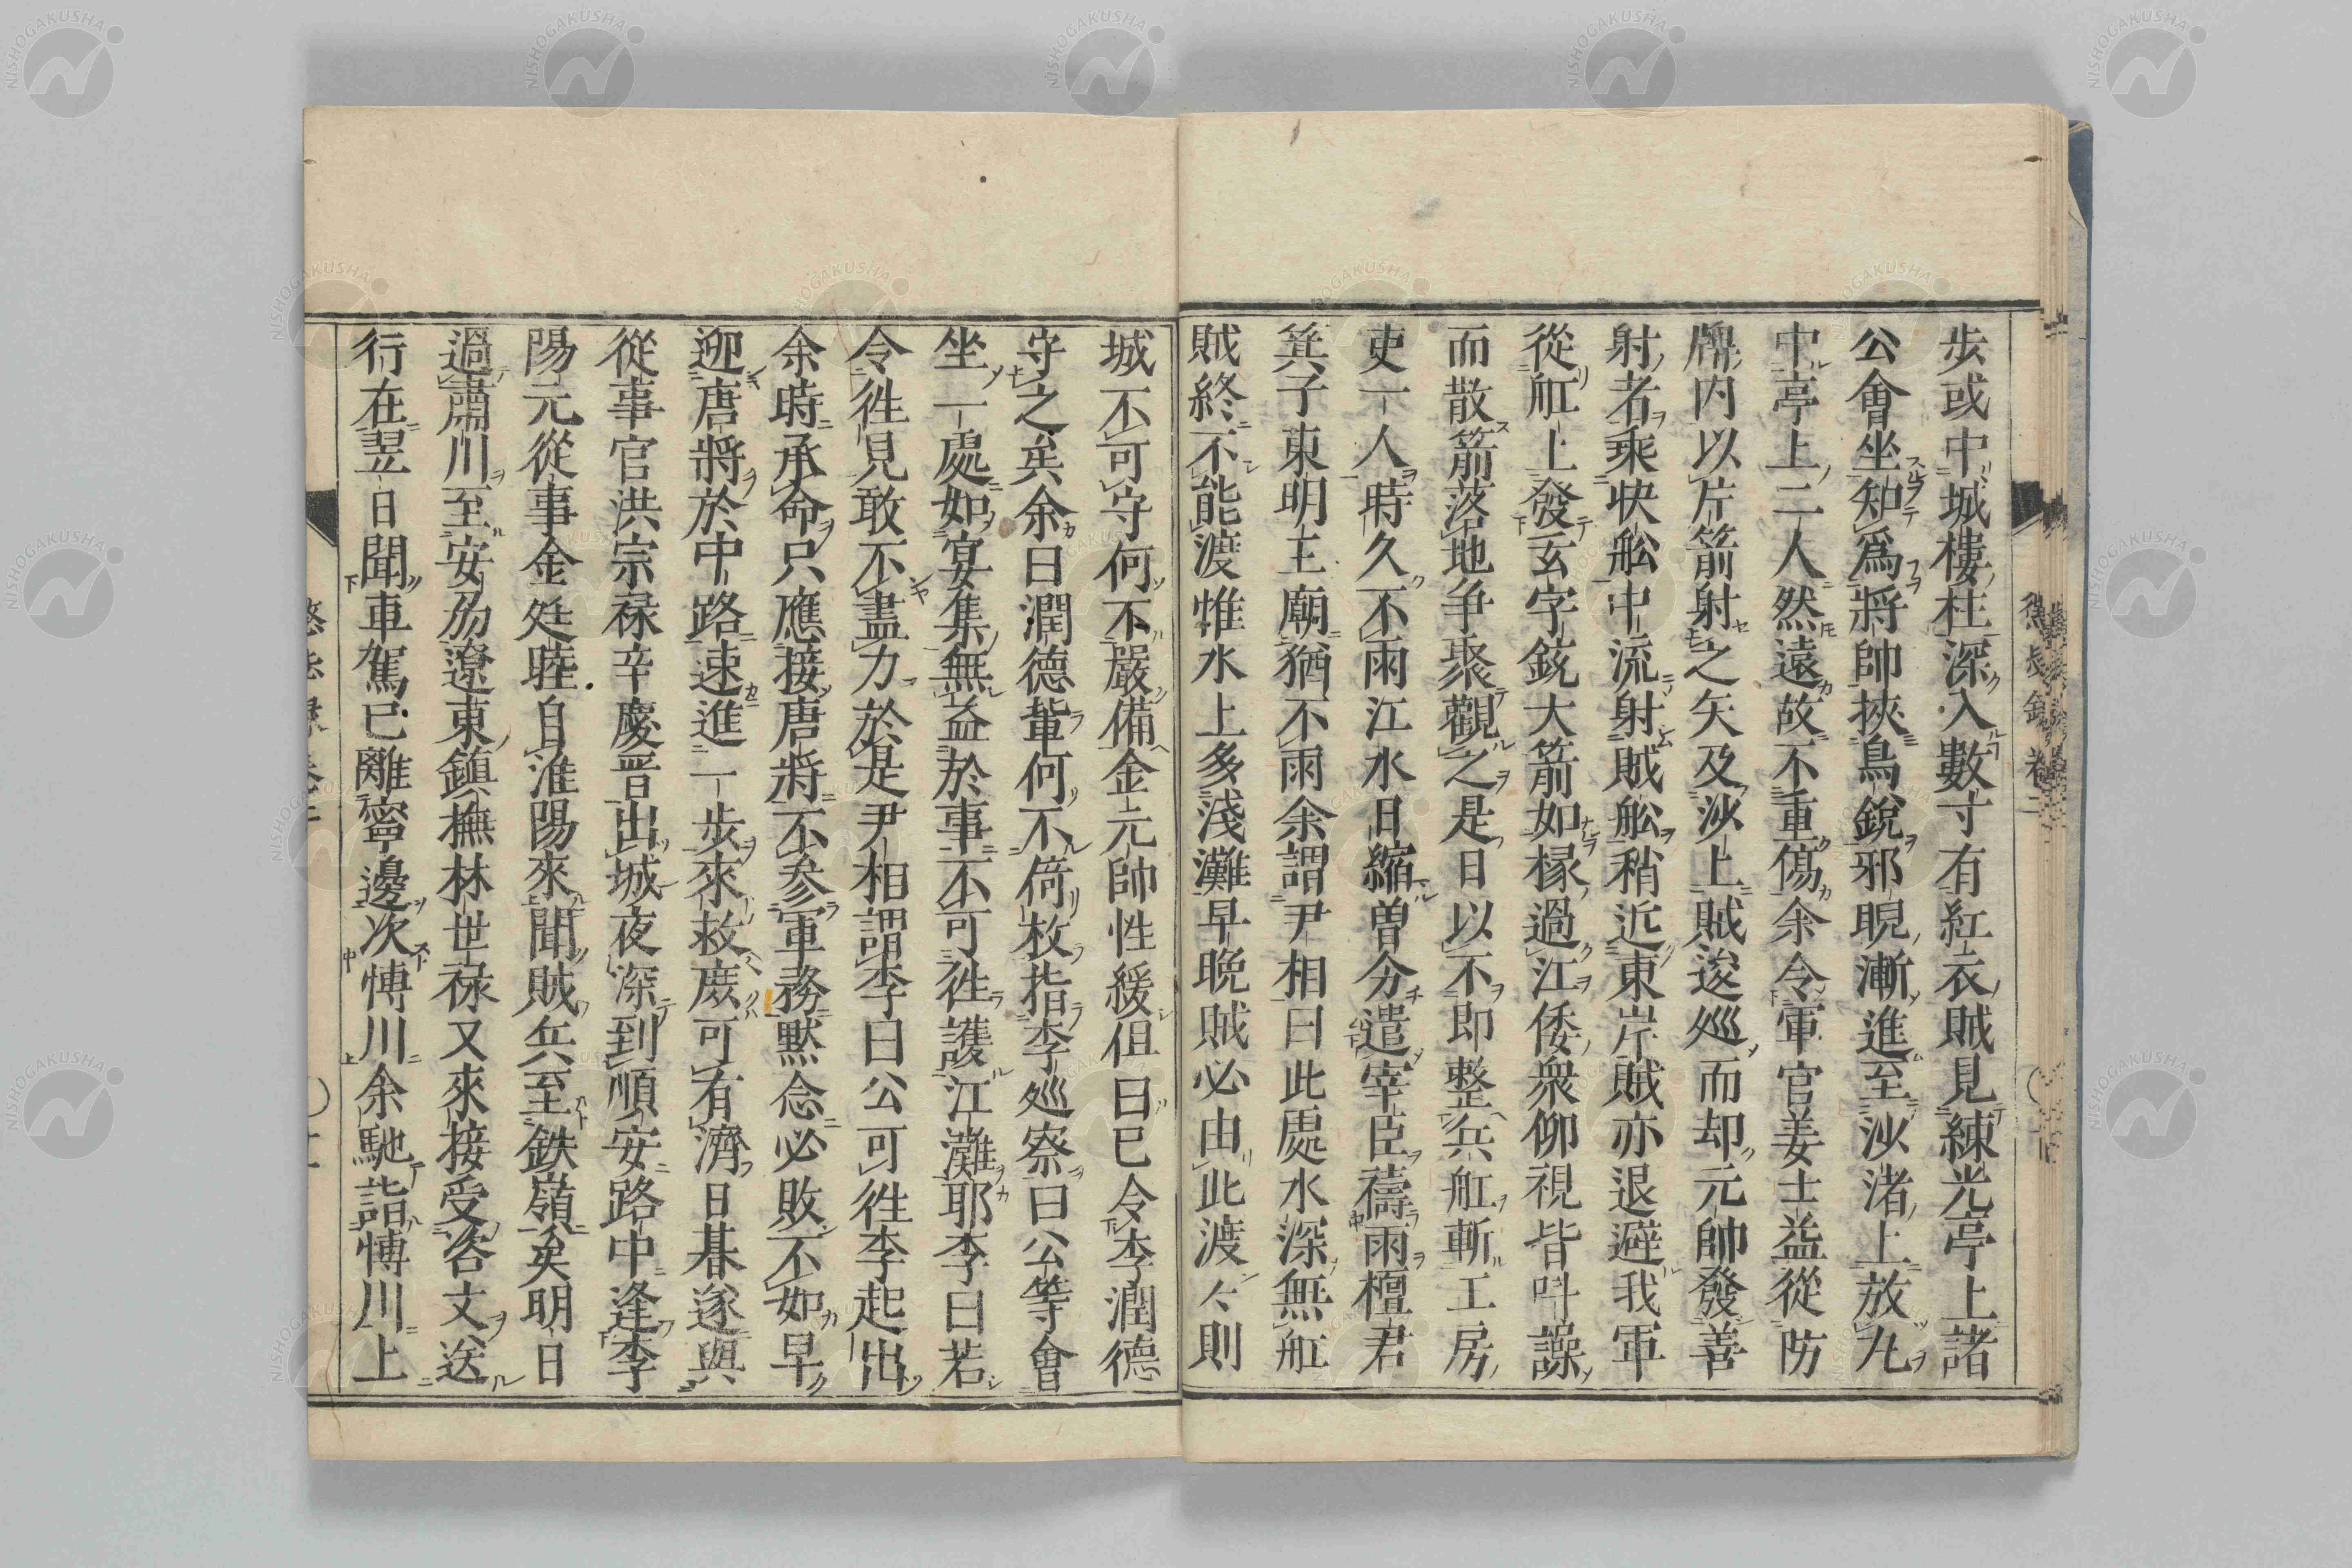 歩或中城樓柱深入數寸有紅衣賊見練光亭上諸
公會坐知爲將帥挾鳥銳邪睨漸進至沙渚上放丸
中亭上二人然遠故不重傷余令軍官姜士益從防
牌内以片箭射之矢及沙上賊逡巡而却元帥發善
射者乘快舩中流射賊舩稍近東岸賊亦退避我軍
從舡上發玄字銃大箭如椽過江倭衆仰視皆叫譟
而散箭落地争聚觀之是日以不即整兵舡斬工房
吏一人時久不雨江水日縮曽分遣宰臣禱雨檀君
箕子東明王廟猶不雨余謂尹相曰此處水深無舡
賊終不能渡惟水上多淺灘早晩賊必由此渡〻則
城不可守何不嚴備金元帥性緩但曰已令李潤德
守之矣余曰潤德輩何不倚杖指李巡察曰公等會
坐一處如宴集無益於事不可徃護江灘耶李曰若
令徃見敢不盡力於是尹相謂李曰公可徃李起出
余時承命只應接唐將不参軍務黙念必敗不如早
迎唐將於中路速進一歩來救庶可有濟日暮遂與
從事官洪宗禄辛慶晋出城夜深到順安路中逢李
陽元從事金廷睦自淮陽來聞賊兵至鉄嶺矣明日
過肅川至安州遼東鎭撫林世禄又來接受咨文送
行在翌日聞車駕已離寧邊次博川余馳詣博川上